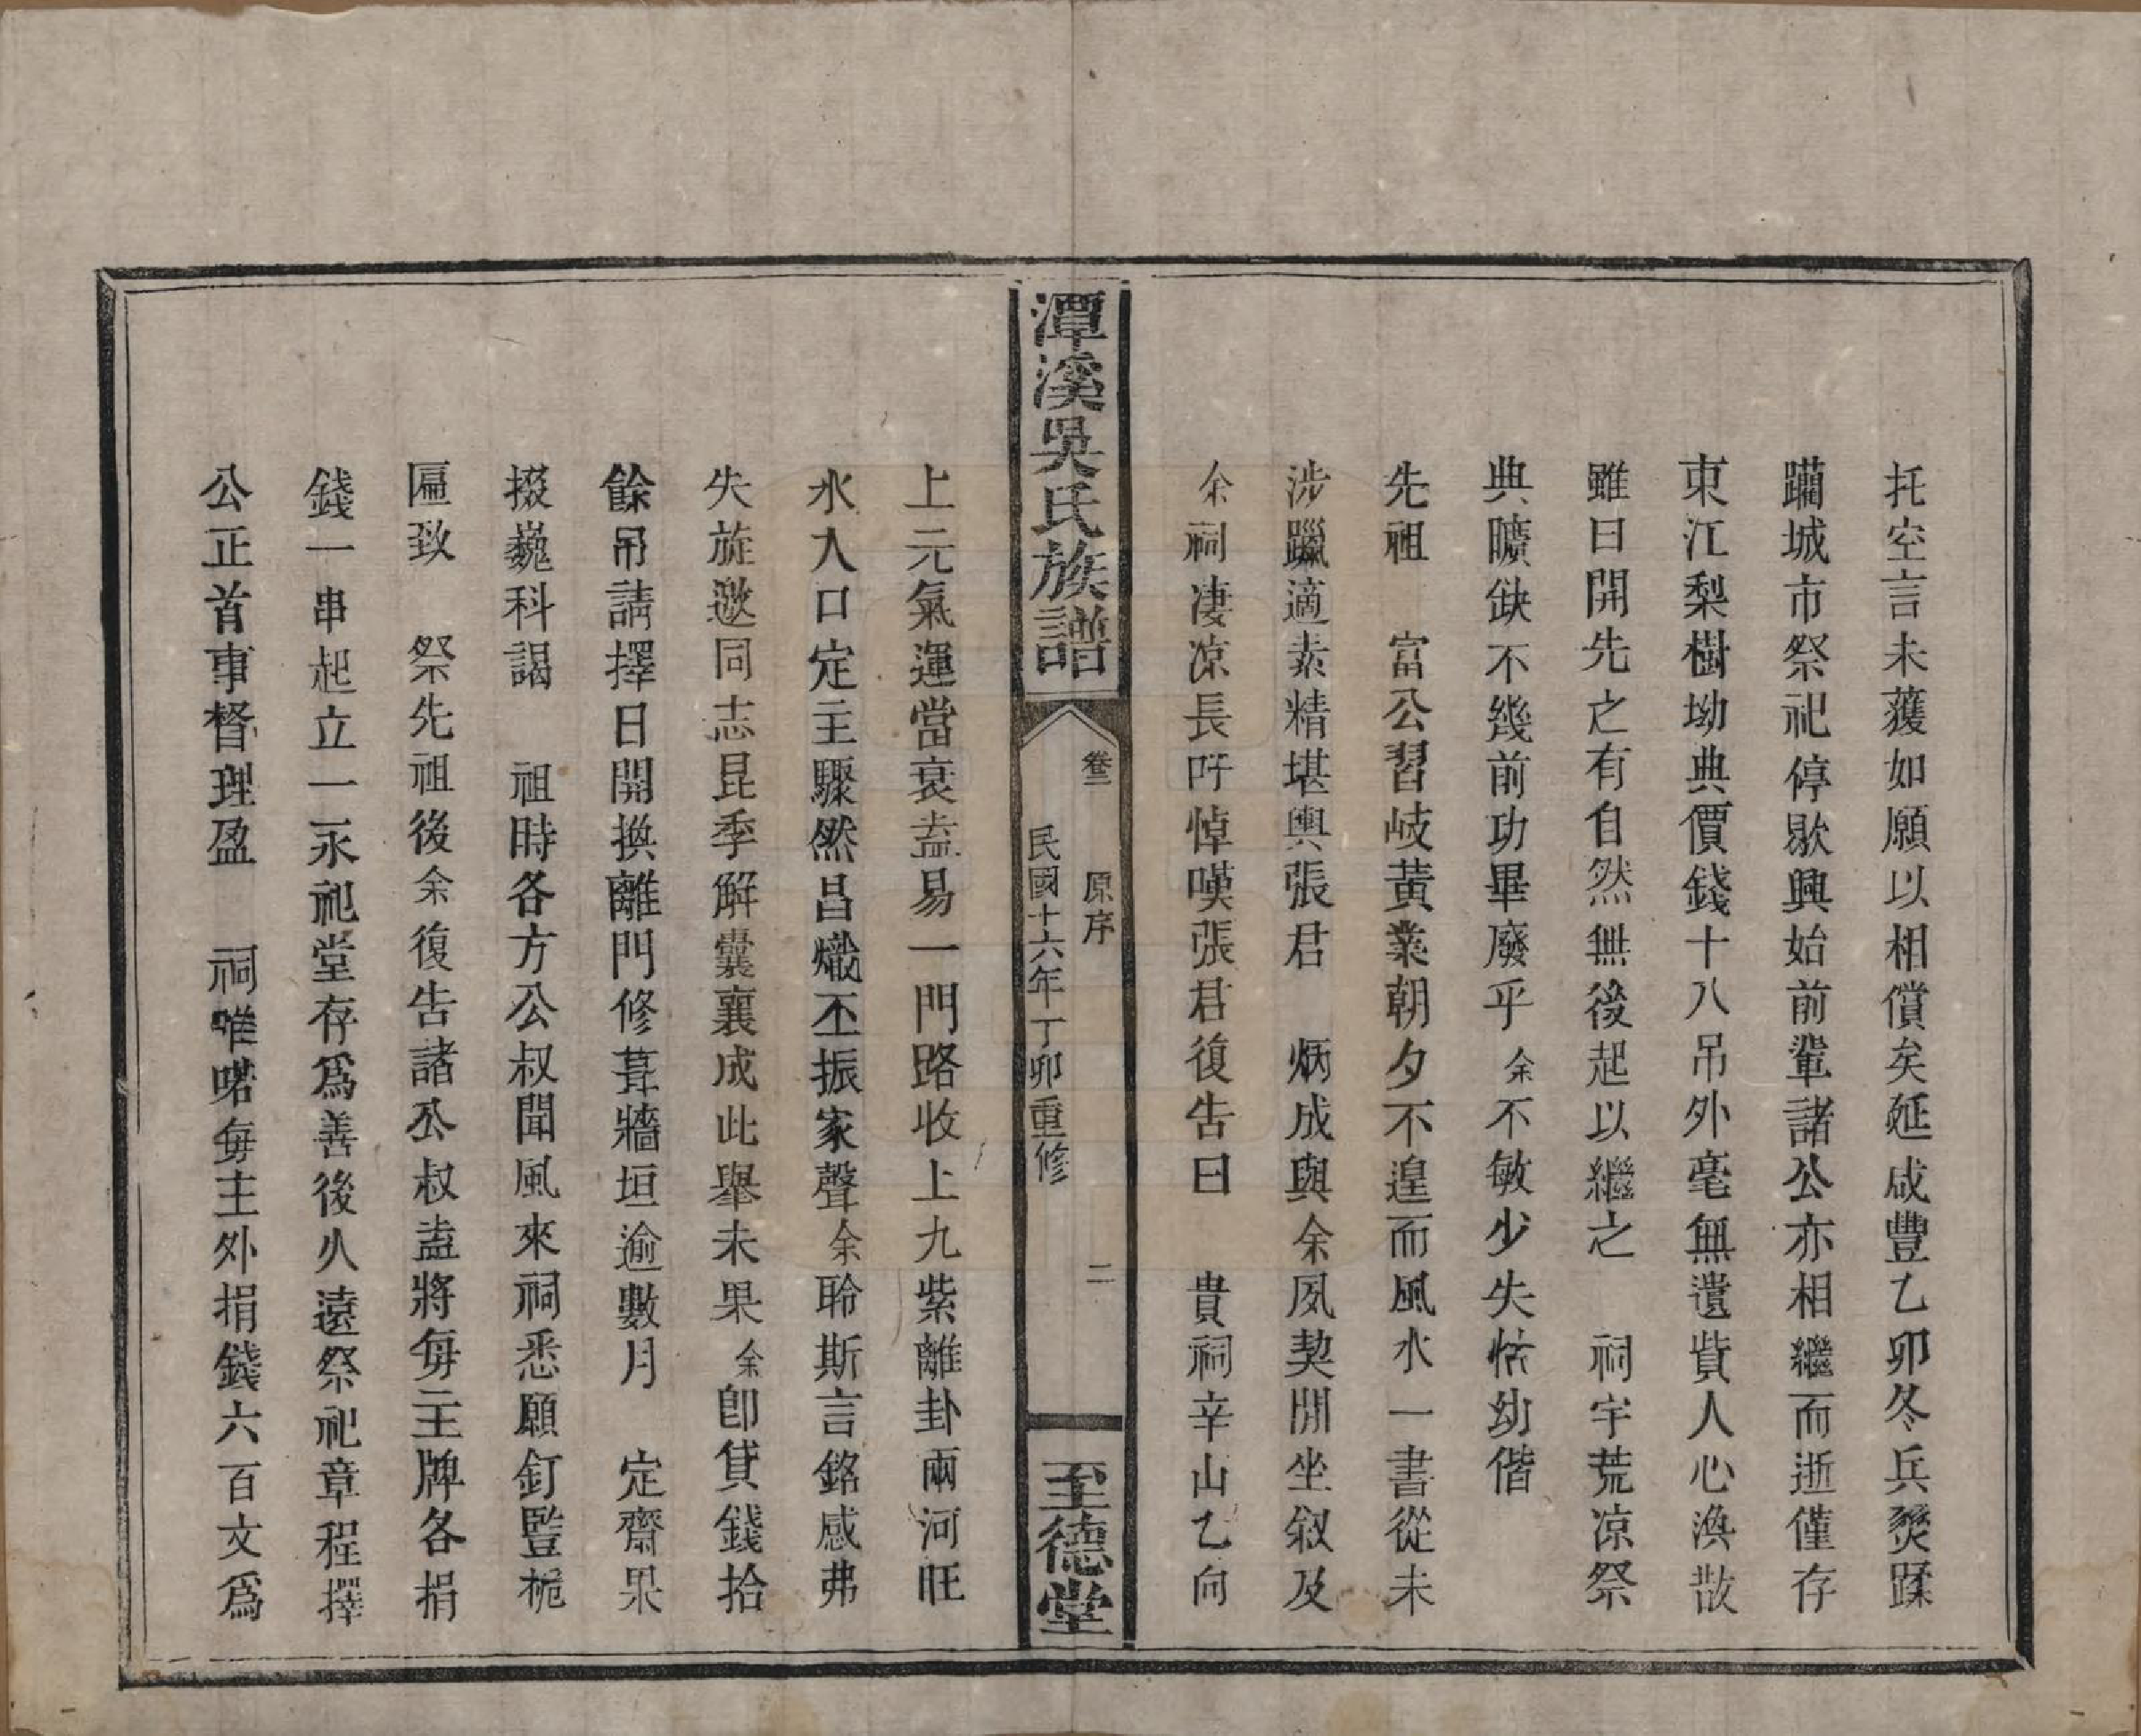 托空言未蒦如願以相償矣延咸豐乙卯冬兵燹蹂
躪城市祭祀停歇興始前輩諸公亦相繼而逝僅存
東江梨樹坳典價錢十八吊外毫無遺貲人心渙散
雖曰開先之有自然無後起以繼之　祠宇荒凉祭
典曠缺不幾前功畢廢乎余不敏少失怙幼偕
先祖　富公習岐黃業朝夕不遑而風水一書從未
涉躐適素精堪輿張君　炳成與余夙契閒坐叙及
余祠凄凉長吁悼嘆張君復告曰　貴祠辛山乙向
潭溪吳氏族譜
卷三　原序　二
民國十六年丁卯重修
至德堂
上元氣運當衰盍易一門路收上九紫離卦兩河旺
水入口定主驟然昌熾丕振家聲余聆斯言銘感弗
失旋邀同志昆季解囊襄成此舉未果余卽貸錢拾
餘吊請擇日開換離門修葺牆垣逾數月　定齋果
掇巍科謁　祖時各方公叔聞風來祠悉願釘豎桅
匾致　祭先祖後余復告諸公叔盍將每主牌各捐
錢一串起立一永祀堂存爲善後久遠祭祀章程擇
公正首事督理盈　祠唯喏每主外捐錢六百文爲